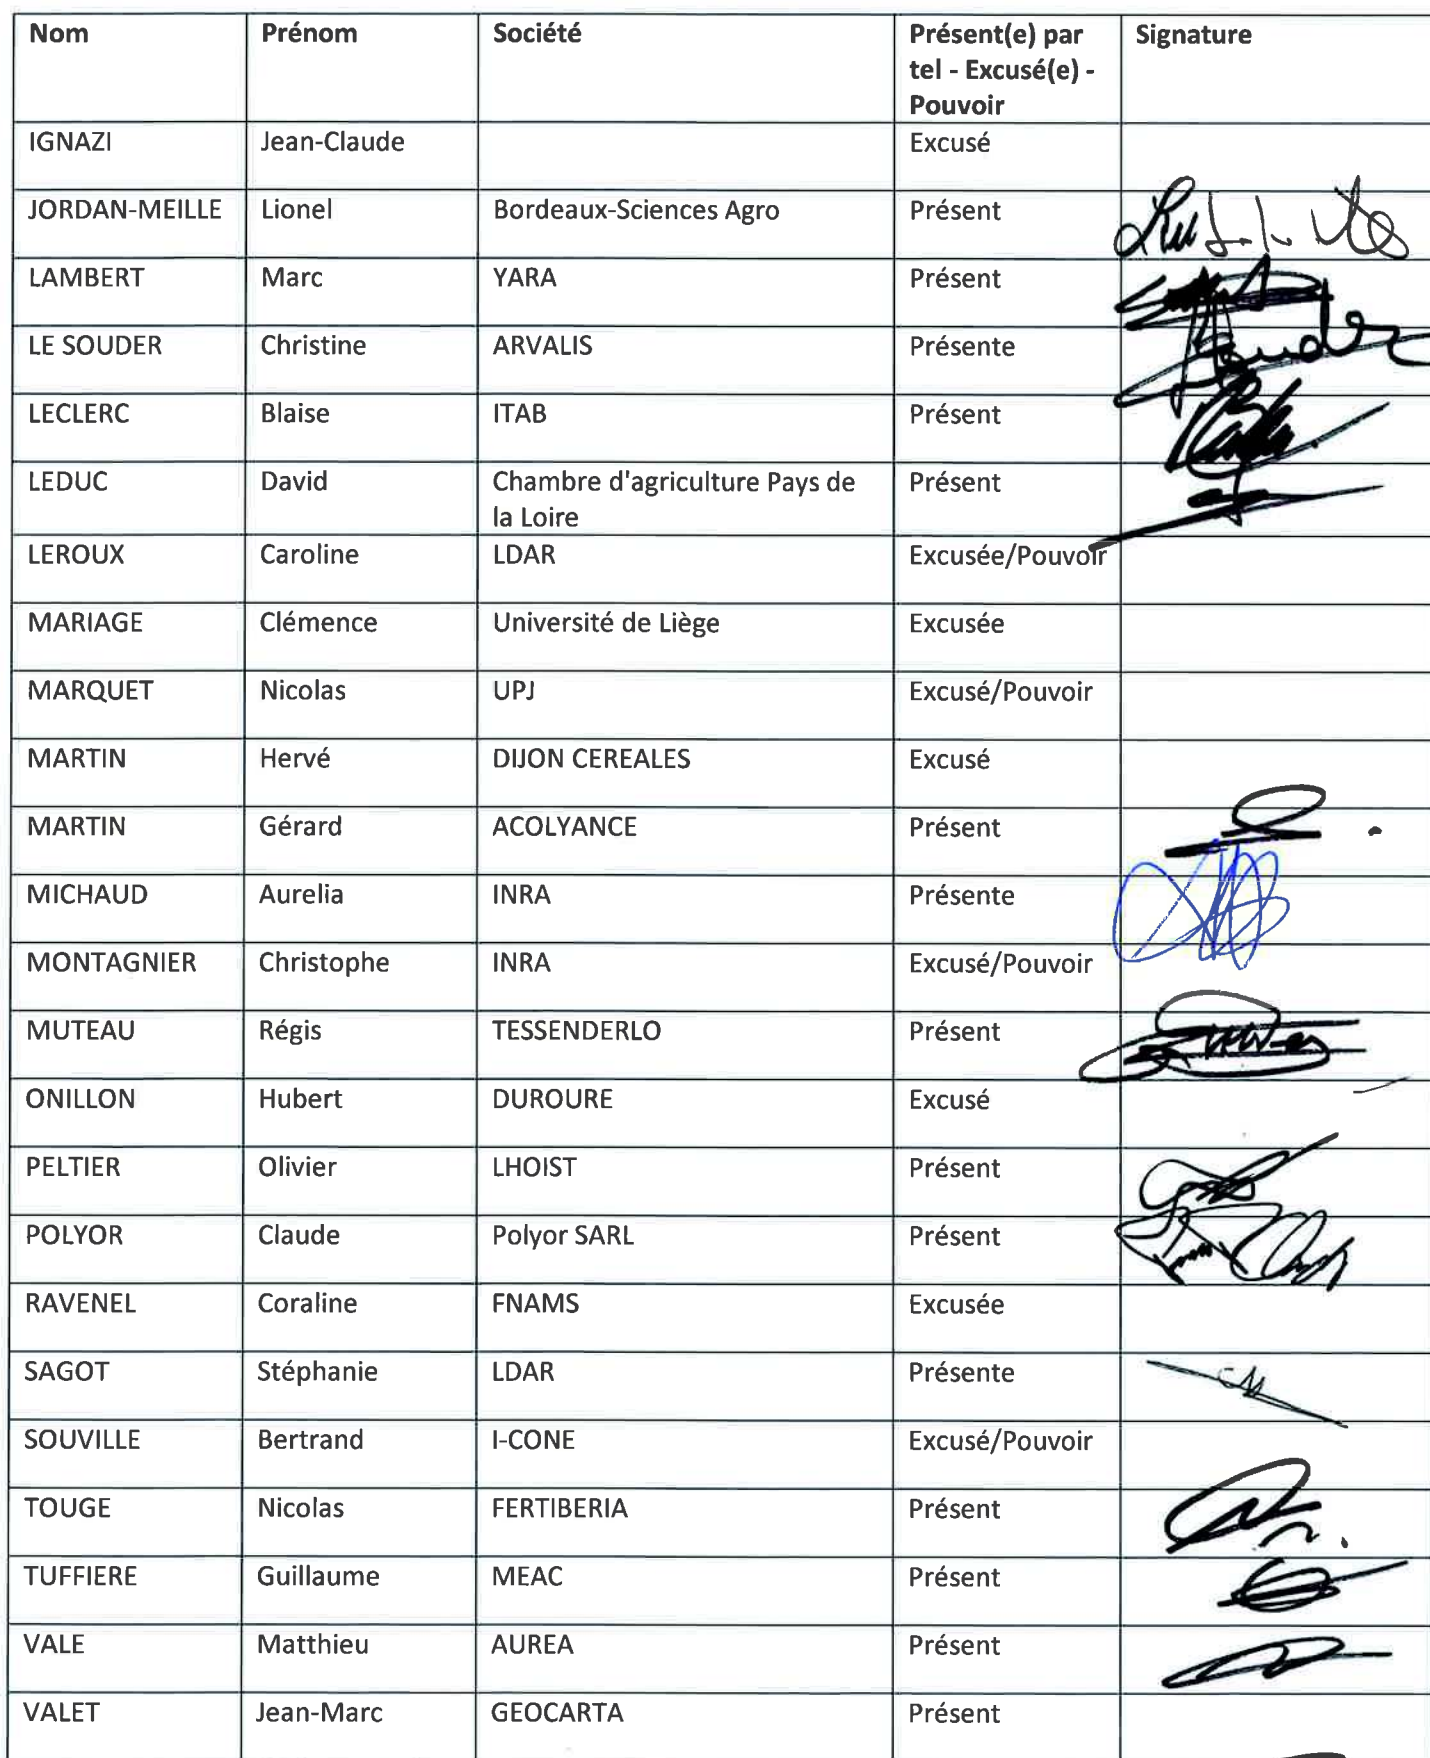 Nom Prénom Société Présent(e) par Signature
tel - Excusé(e) -
Pouvoir
IGNAZI Jean-Claude Excusé
JORDAN-MEILLE Lionel Bordeaux-Sciences Agro Présent
LAMBERT Marc YARA Présent
LE SOUDER Christine ARVALIS Présente
LECLERC Blaise ITAB Présent
LEDUC David Chambre d'agriculture Pays de Présent
la Loire
LEROUX Caroline LDAR Excusée/Pouvoir
MARIAGE Clémence Université de Liège Excusée
MARQUET Nicolas UPJ Excusé/Pouvoir
MARTIN Hervé DIJON CEREALES Excusé
MARTIN Gérard ACOLYANCE Présent
MICHAUD Aurelia INRA Présente
MONTAGNIER Christophe INRA Excusé/Pouvoir
MUTEAU Régis TESSENDERLO Présent
ONILLON Hubert DUROURE Excusé
PELTIER Olivier LHOIST Présent
POLYOR Claude Polyor SARL Présent
RAVENEL Coraline FNAMS Excusée
SAGOT Stéphanie LDAR Présente
SOUVILLE Bertrand I-CONE Excusé/Pouvoir
TOUGE Nicolas FERTIBERIA Présent
TUFFIERE Guillaume MEAC Présent
VALE Matthieu AUREA Présent
VALET Jean-Marc GEOCARTA Présent